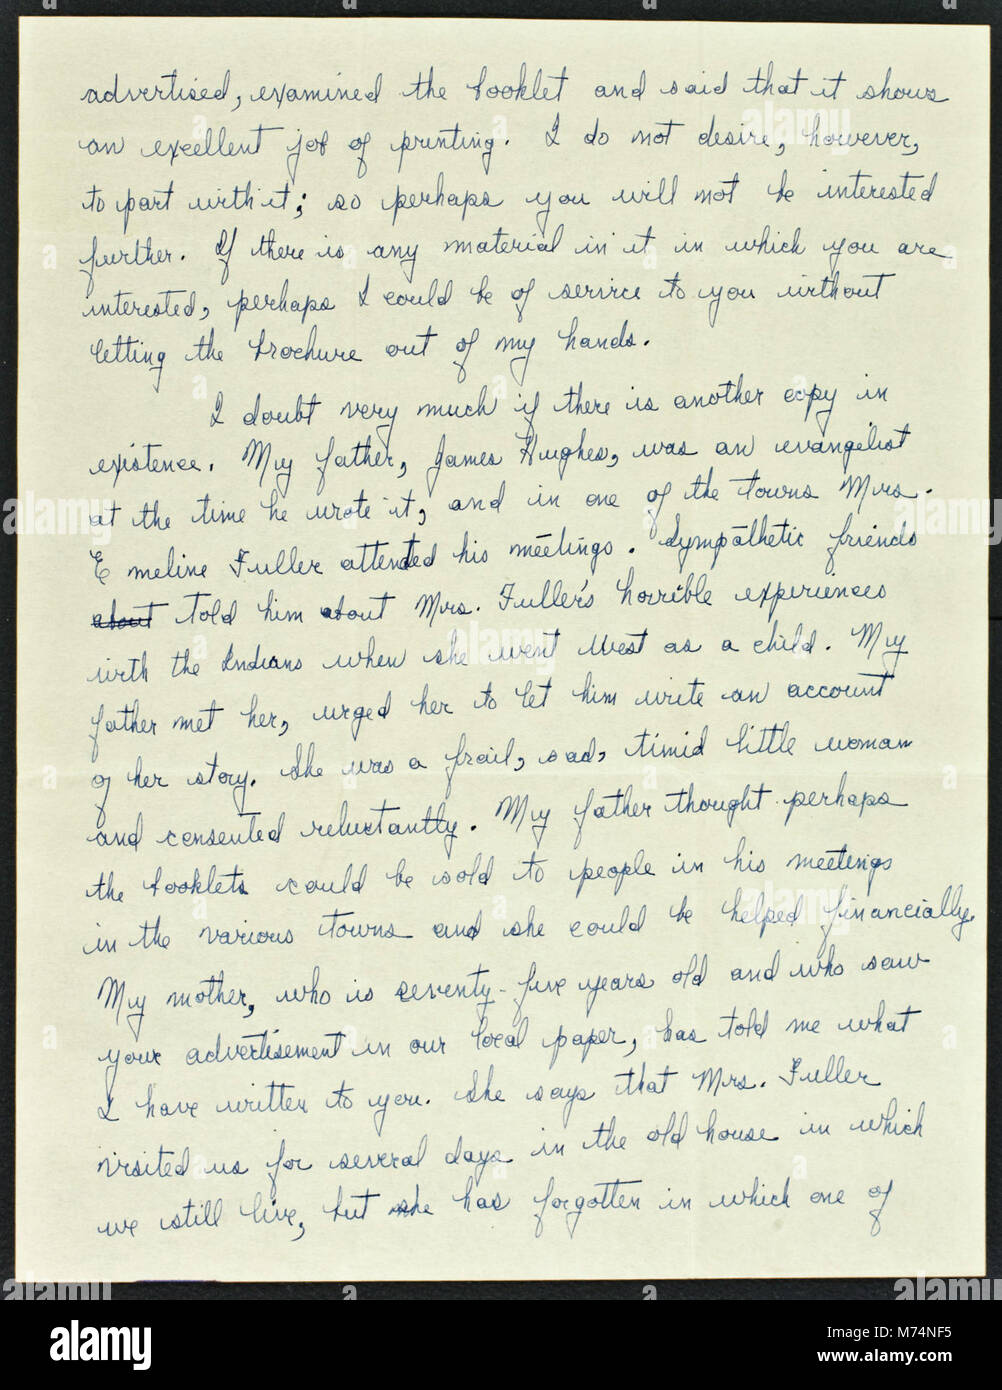 advertised, examined the booklet and said that it shows
an excellent job of printing. I do not desire, however,
to part with it; so perhaps you will not be interested
further. If there is any material in it in which you are
interested, perhaps I could be of service to you without
letting the brochure out of my hands.
I doubt very much if there is another copy in
existence. My father, James Hughes, was an evangelist
at the time he wrote it, and in one of the towns Mrs.
Emeline Fuller attended his meetings. Sympathetic friends
about told him about Mrs. Fuller's horrible experiences
with the Indians when she went West as a child. My
father met her, urged her to let him write an account
of her story. She was a frail, sad, timid little woman
and consented reluctantly. My father thought perhaps
the booklets could be sold to people in his meetings
in the various towns and she could be helped financially.
My mother, who is seventy-five years old and who saw
your advertisement in our local paper, has told me what
I have written to you. She says that Mrs. Fuller
visited us for several days in the old house in which
we still live, but she has forgotten in which one of
alamy
M74NF5
www.alamy.com